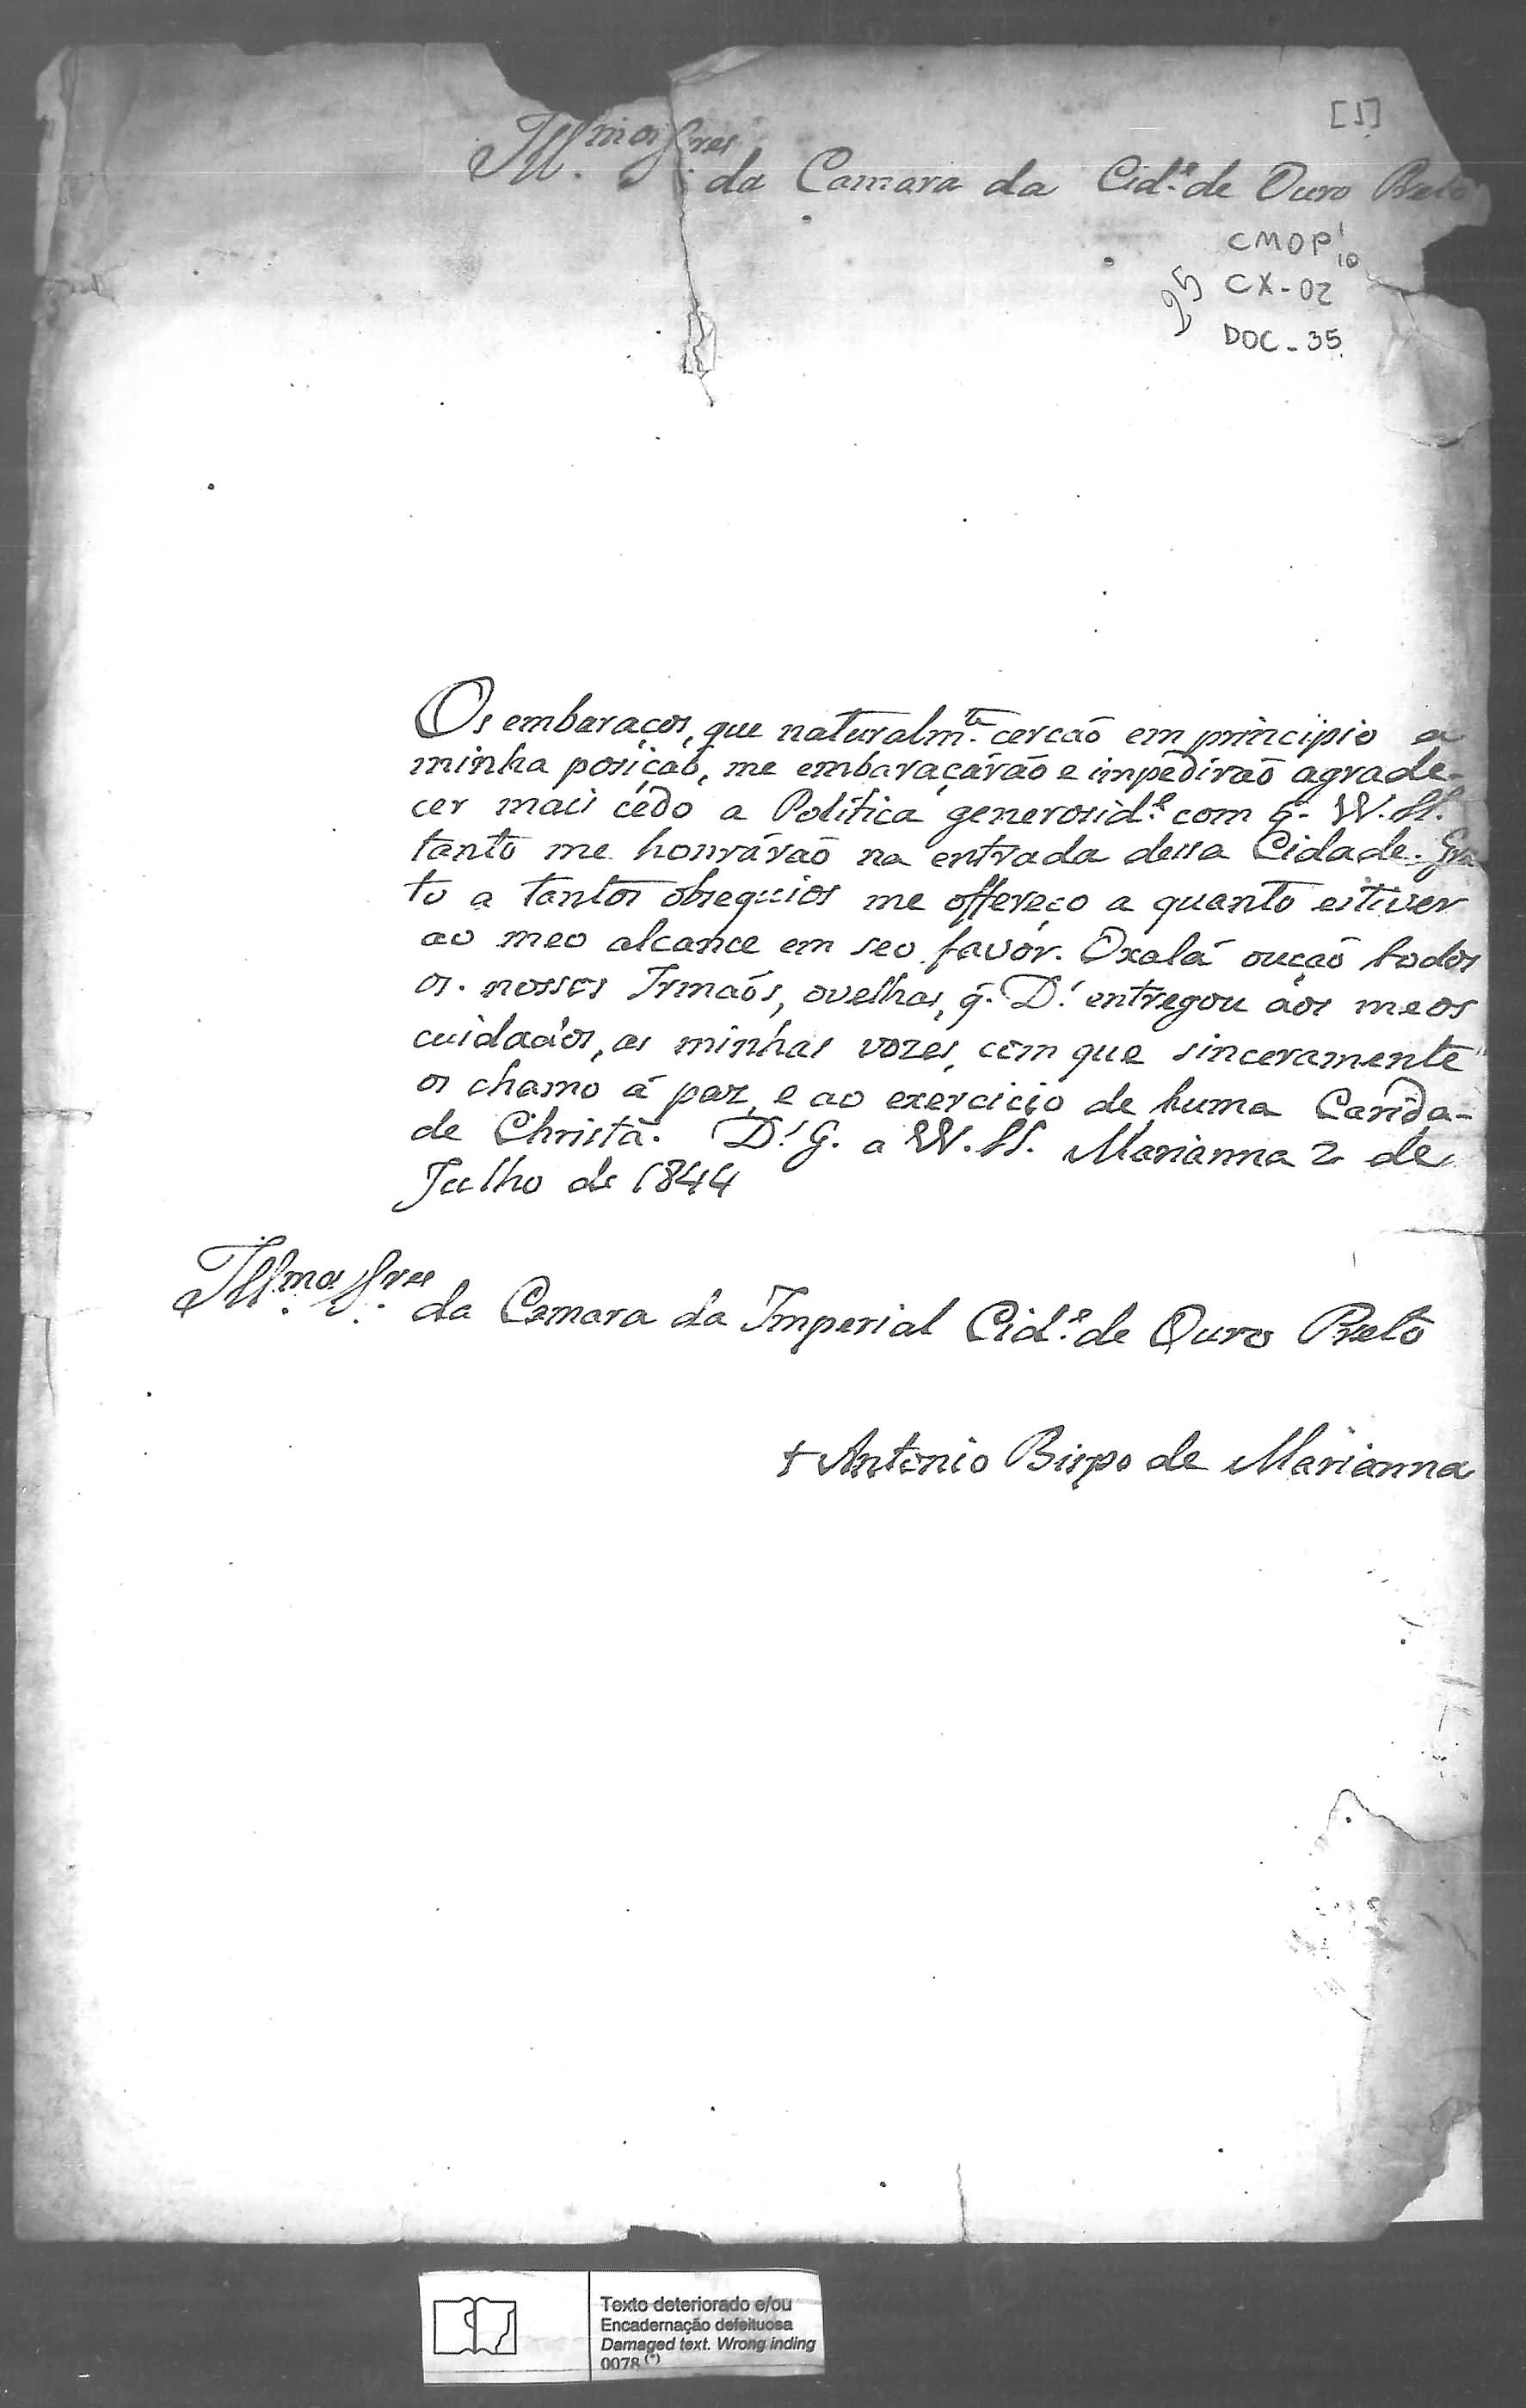 [1]
Ill.mos Sres da Camara da Cid.e de Ouro Preto
CMOP 1
10
25 CX-02
DOC-35
Os embaraços, que naturalm.te cercão em principio a
minha posição, me embaraçárão e impedirão agrade-
cer mais cedo a Politica generosid.e com q. VV. SS.
tanto me honrárão na entrada dessa Cidade. Gra
to a tantos obsequios me offereço a quanto estiver
ao meo alcance em seo favor. Oxalá oução todos
os nossos Irmãos, ovelhas, q. D.s entregou aos meos
cuidados, as minhas vozes, com que sinceramente
os chamo á paz, e ao exercicio de huma Carida-
de Christã. D.s G. a VV. SS. Marianna 2 de
Julho de 1844
Ill.mos S.res da Camara da Imperial Cid.e de Ouro Preto
+ Antonio Bispo de Marianna
Texto deteriorado e/ou
Encadernação defeituosa
Damaged text. Wrong inding
0078 (*)